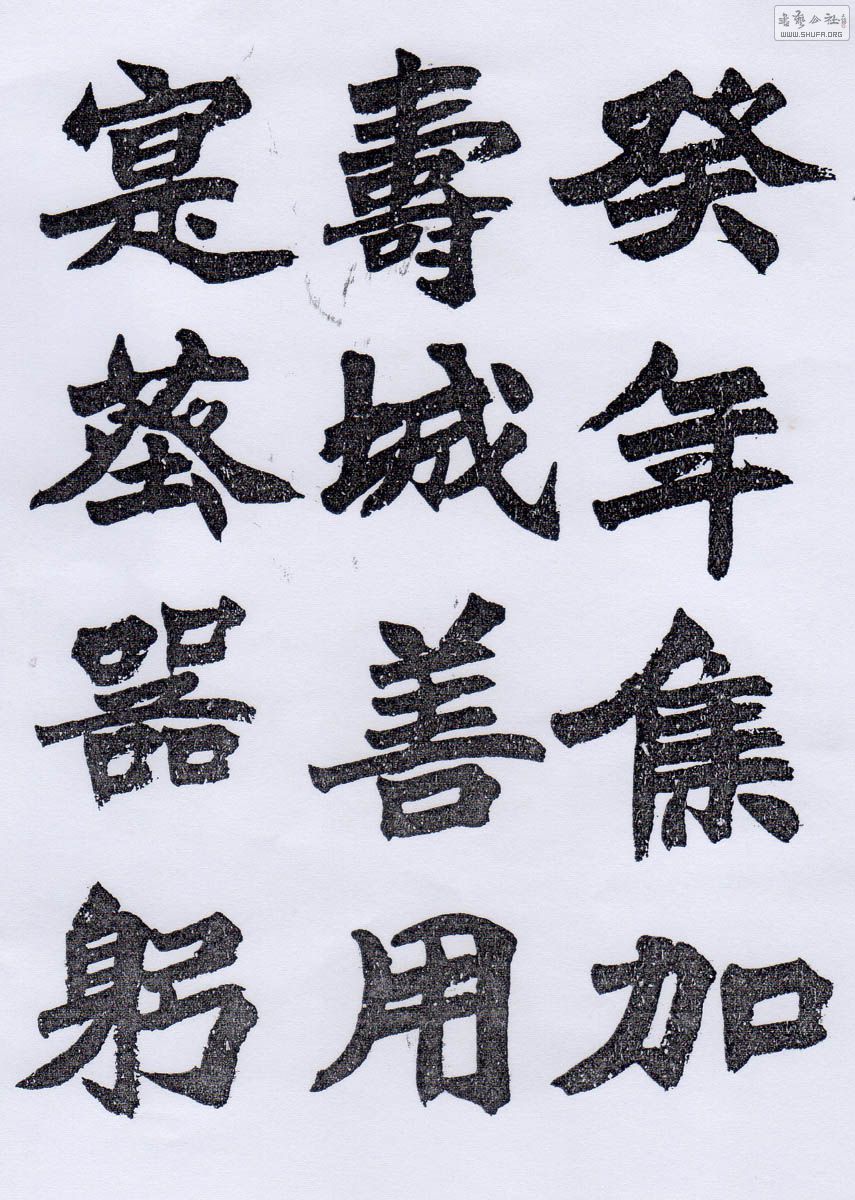 書藝公社
WWW.SHUFA.ORG
癸年焦加
壽城善用
寔器躬